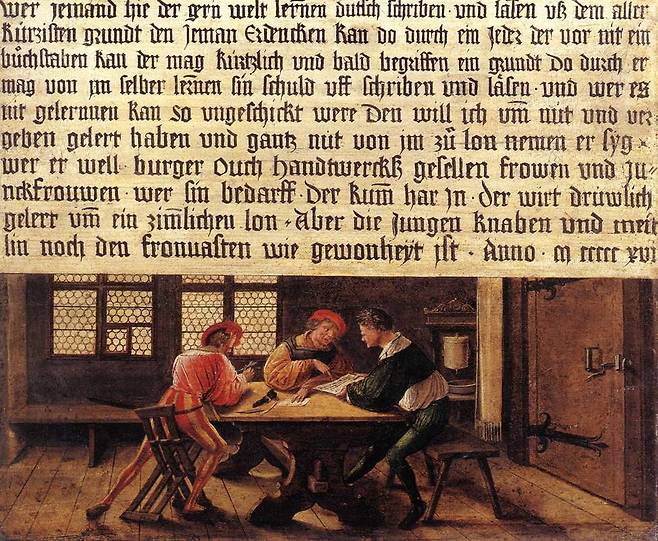 wer jemand hie der gern welt lernen dutsch schriben · vnd läsen vß dem aller
kürtzisten grundt den Jeman Erdencken kan do durch ein Jeder der vor nit ein
bůchstaben kan der mag kürtzlich vnd bald begriffen ein grundt do durch er
mag von jm selber lernen sin schuld vff schriben vnd läsen · vnd wer es
nit gelernnen kan so vngeschickt were Den will ich vm̄ nüt vnd ver
geben gelert haben vnd gantz nüt von jm zů lon nemen er syg
wer er well · burger Ouch Handtwerckß gesellen frowen vnd Ju-
nckfrouwen · wer sin bedarff · Der kum̄ har Jn · der wirt drüwlich
gelert vm̄ ein zim̄lichen lon · Aber die Jungen knaben vnd meit
lin noch den fronuasten wie gewonheyt ist · Anno · m ccccc xvi